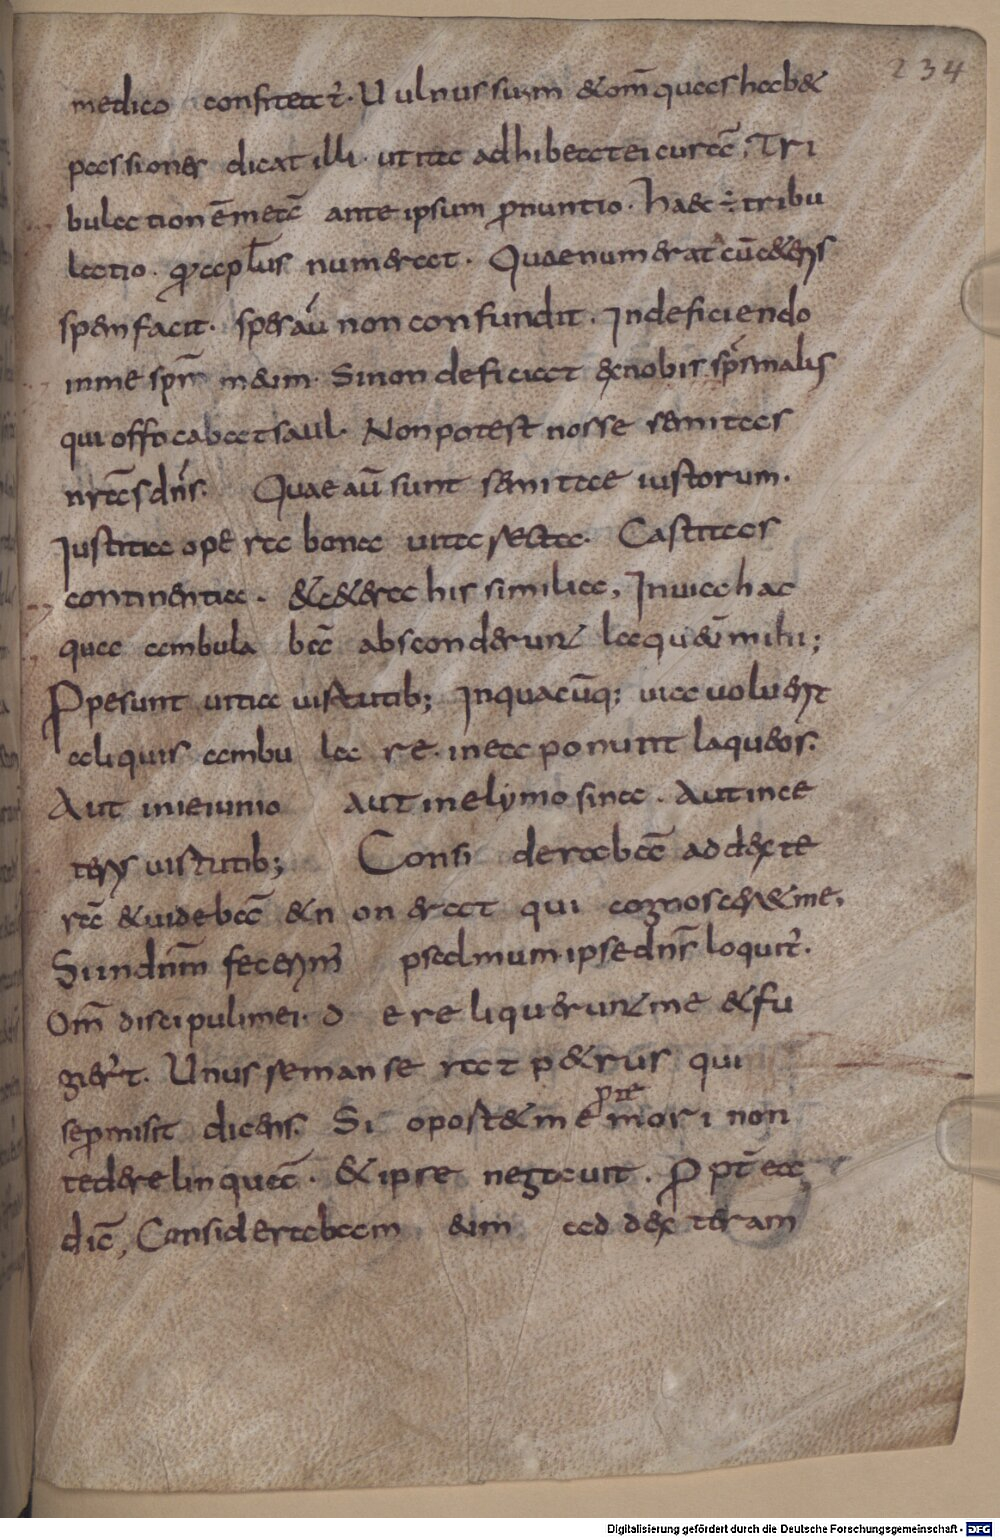 234
medico confiteat̄. Uulnus suum & om̄ quas hab&
passiones dicat illi. ut ita adhibeat ei curā; Tri
bulation ē meā ante ipsum p̄nuntio. haec ÷ tribu
latio. q̄ ap̄lus numerat. Quae numerat cū c&eris
spem facit. spes aū non confundit. In deficiendo
in me spm̄ meum. Si non deficiat ex nobis sps malis
qui offocabat saul. Non potest nosse semitas
nr̄as dns̄. Quae aū sunt semitae iustorum.
Iustitia opera bona uita recta. Castitas
continentia. & c&era his similia, In uia hac
qua ambulabā absconderunt laqueū mihi;
P̄pe sunt uitia uirtutib; In quacūq; uia uoluerit
aliquis ambulare. in ea ponunt laqueos.
Aut in ieiunio aut in elymosina. Aut in ce
teris uirtutib; Considerabā ad dexte
rā & uidebā & non erat qui cognoscer& me.
Si in dnm̄ fecerim̄ psalmum ipse dns̄ loquit̄.
Om̄ discipuli mei. dereliquerunt me & fu
gier̄t. Unus remanserat p&rus qui
se p̄misit dicens. Si oport& me mori non
te derelinquā. & ipse negauit. Propt̄ea
dic̄, Considerabam eum ad dexteram
Digitalisierung gefördert durch die Deutsche Forschungsgemeinschaft - DFG